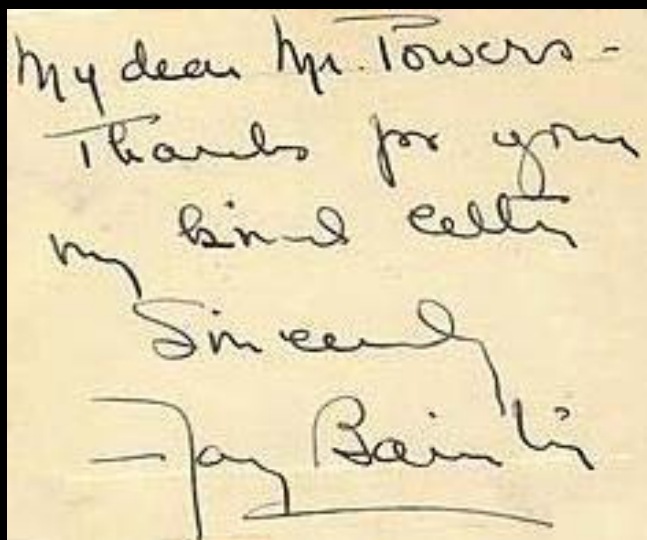 My dear Mr. Powers -
Thanks for your
kind letter
my
Sincerely
Fay Bainter